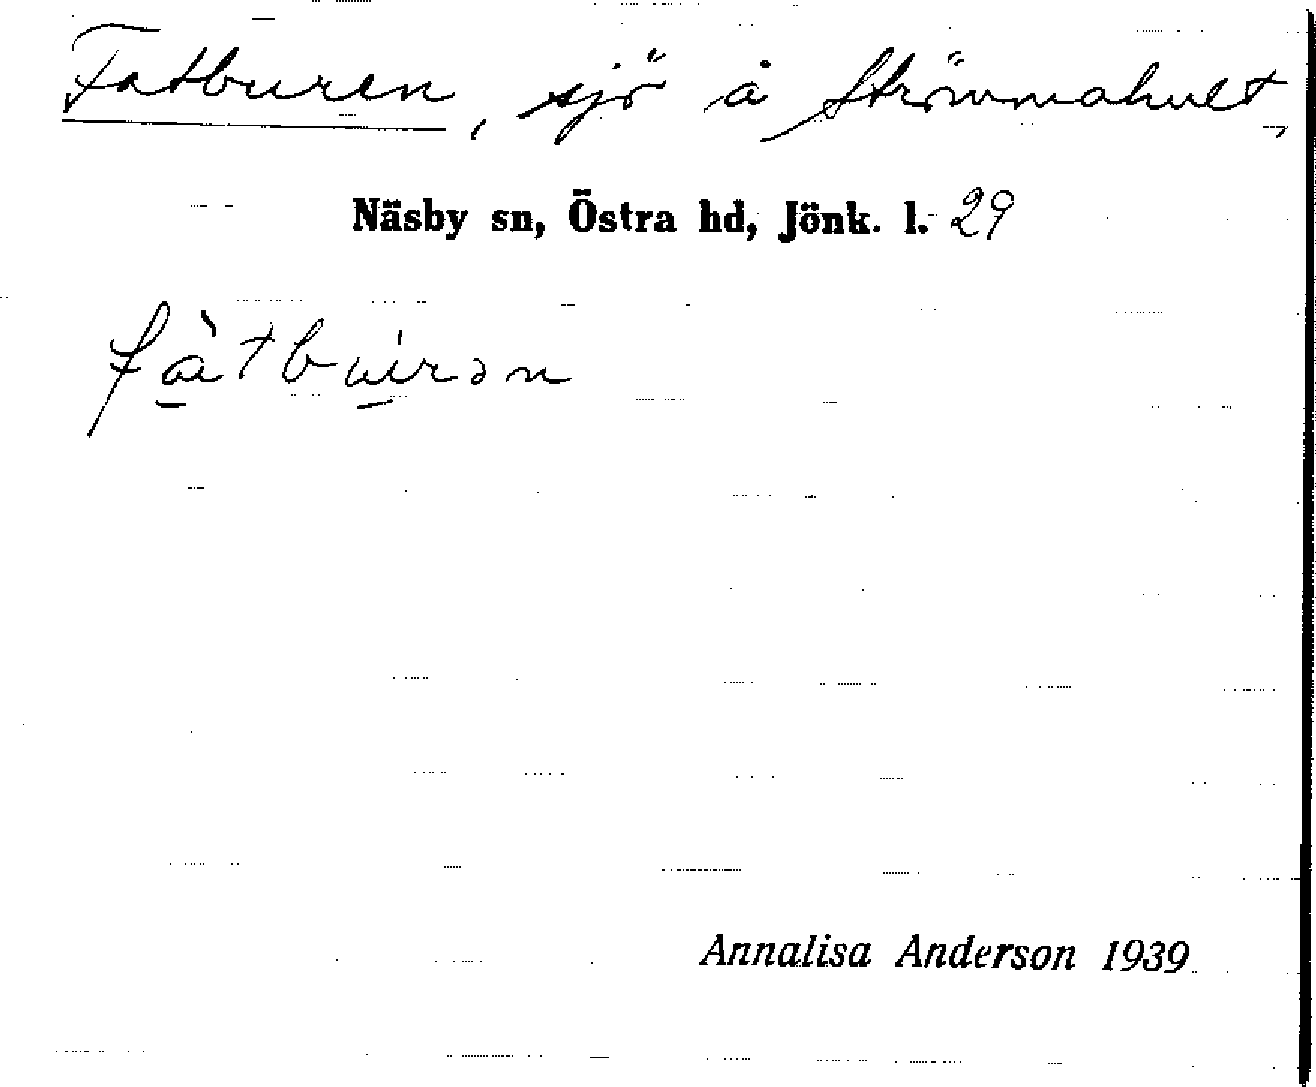 Fatburen, sjö å Strömmahult,
Näsby sn, Östra hd, Jönk. l. 29
fàtbu̍rən
Annalisa Anderson 1939